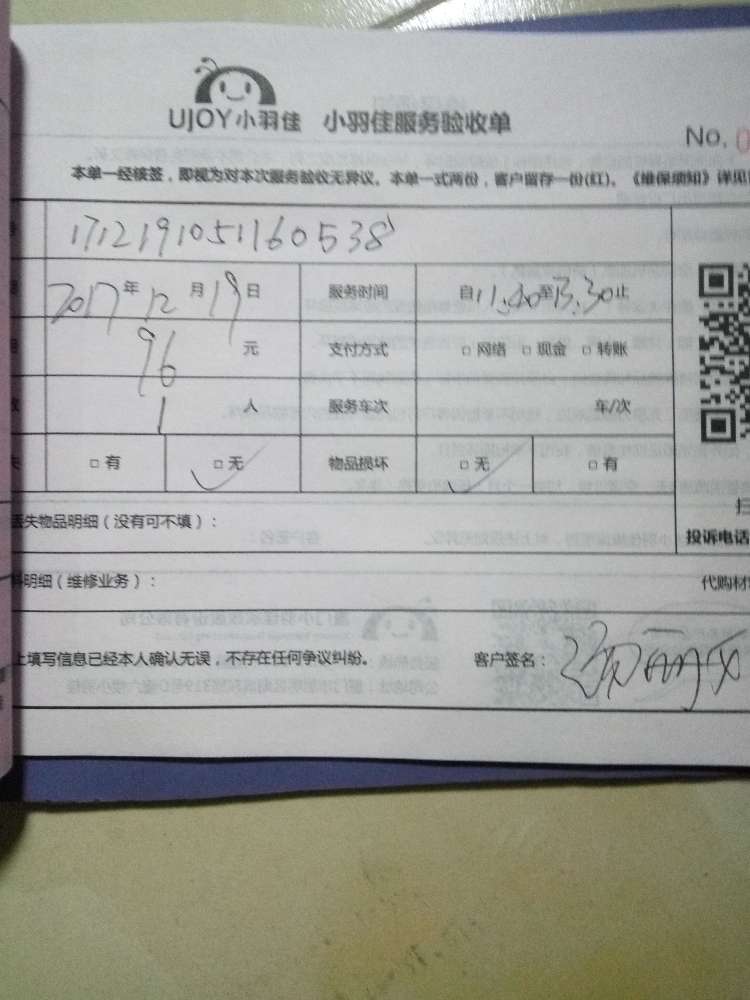 UJOY小羽佳 小羽佳服务验收单
No. 0
本单一经核签，即视为对本次服务验收无异议。本单一式两份，客户留存一份(红)。《维保须知》详见
1712191051160538
2017年12月19日 服务时间 自11.40至13.30止
96元 支付方式 □ 网络 □ 现金 □ 转账
1人 服务车次 车/次
□ 有 □ 无 物品损坏 □ 无 □ 有
丢失物品明细（没有可不填）：
投诉电话
料明细（维修业务）： 代购材
上填写信息已经本人确认无误，不存在任何争议纠纷。 客户签名：